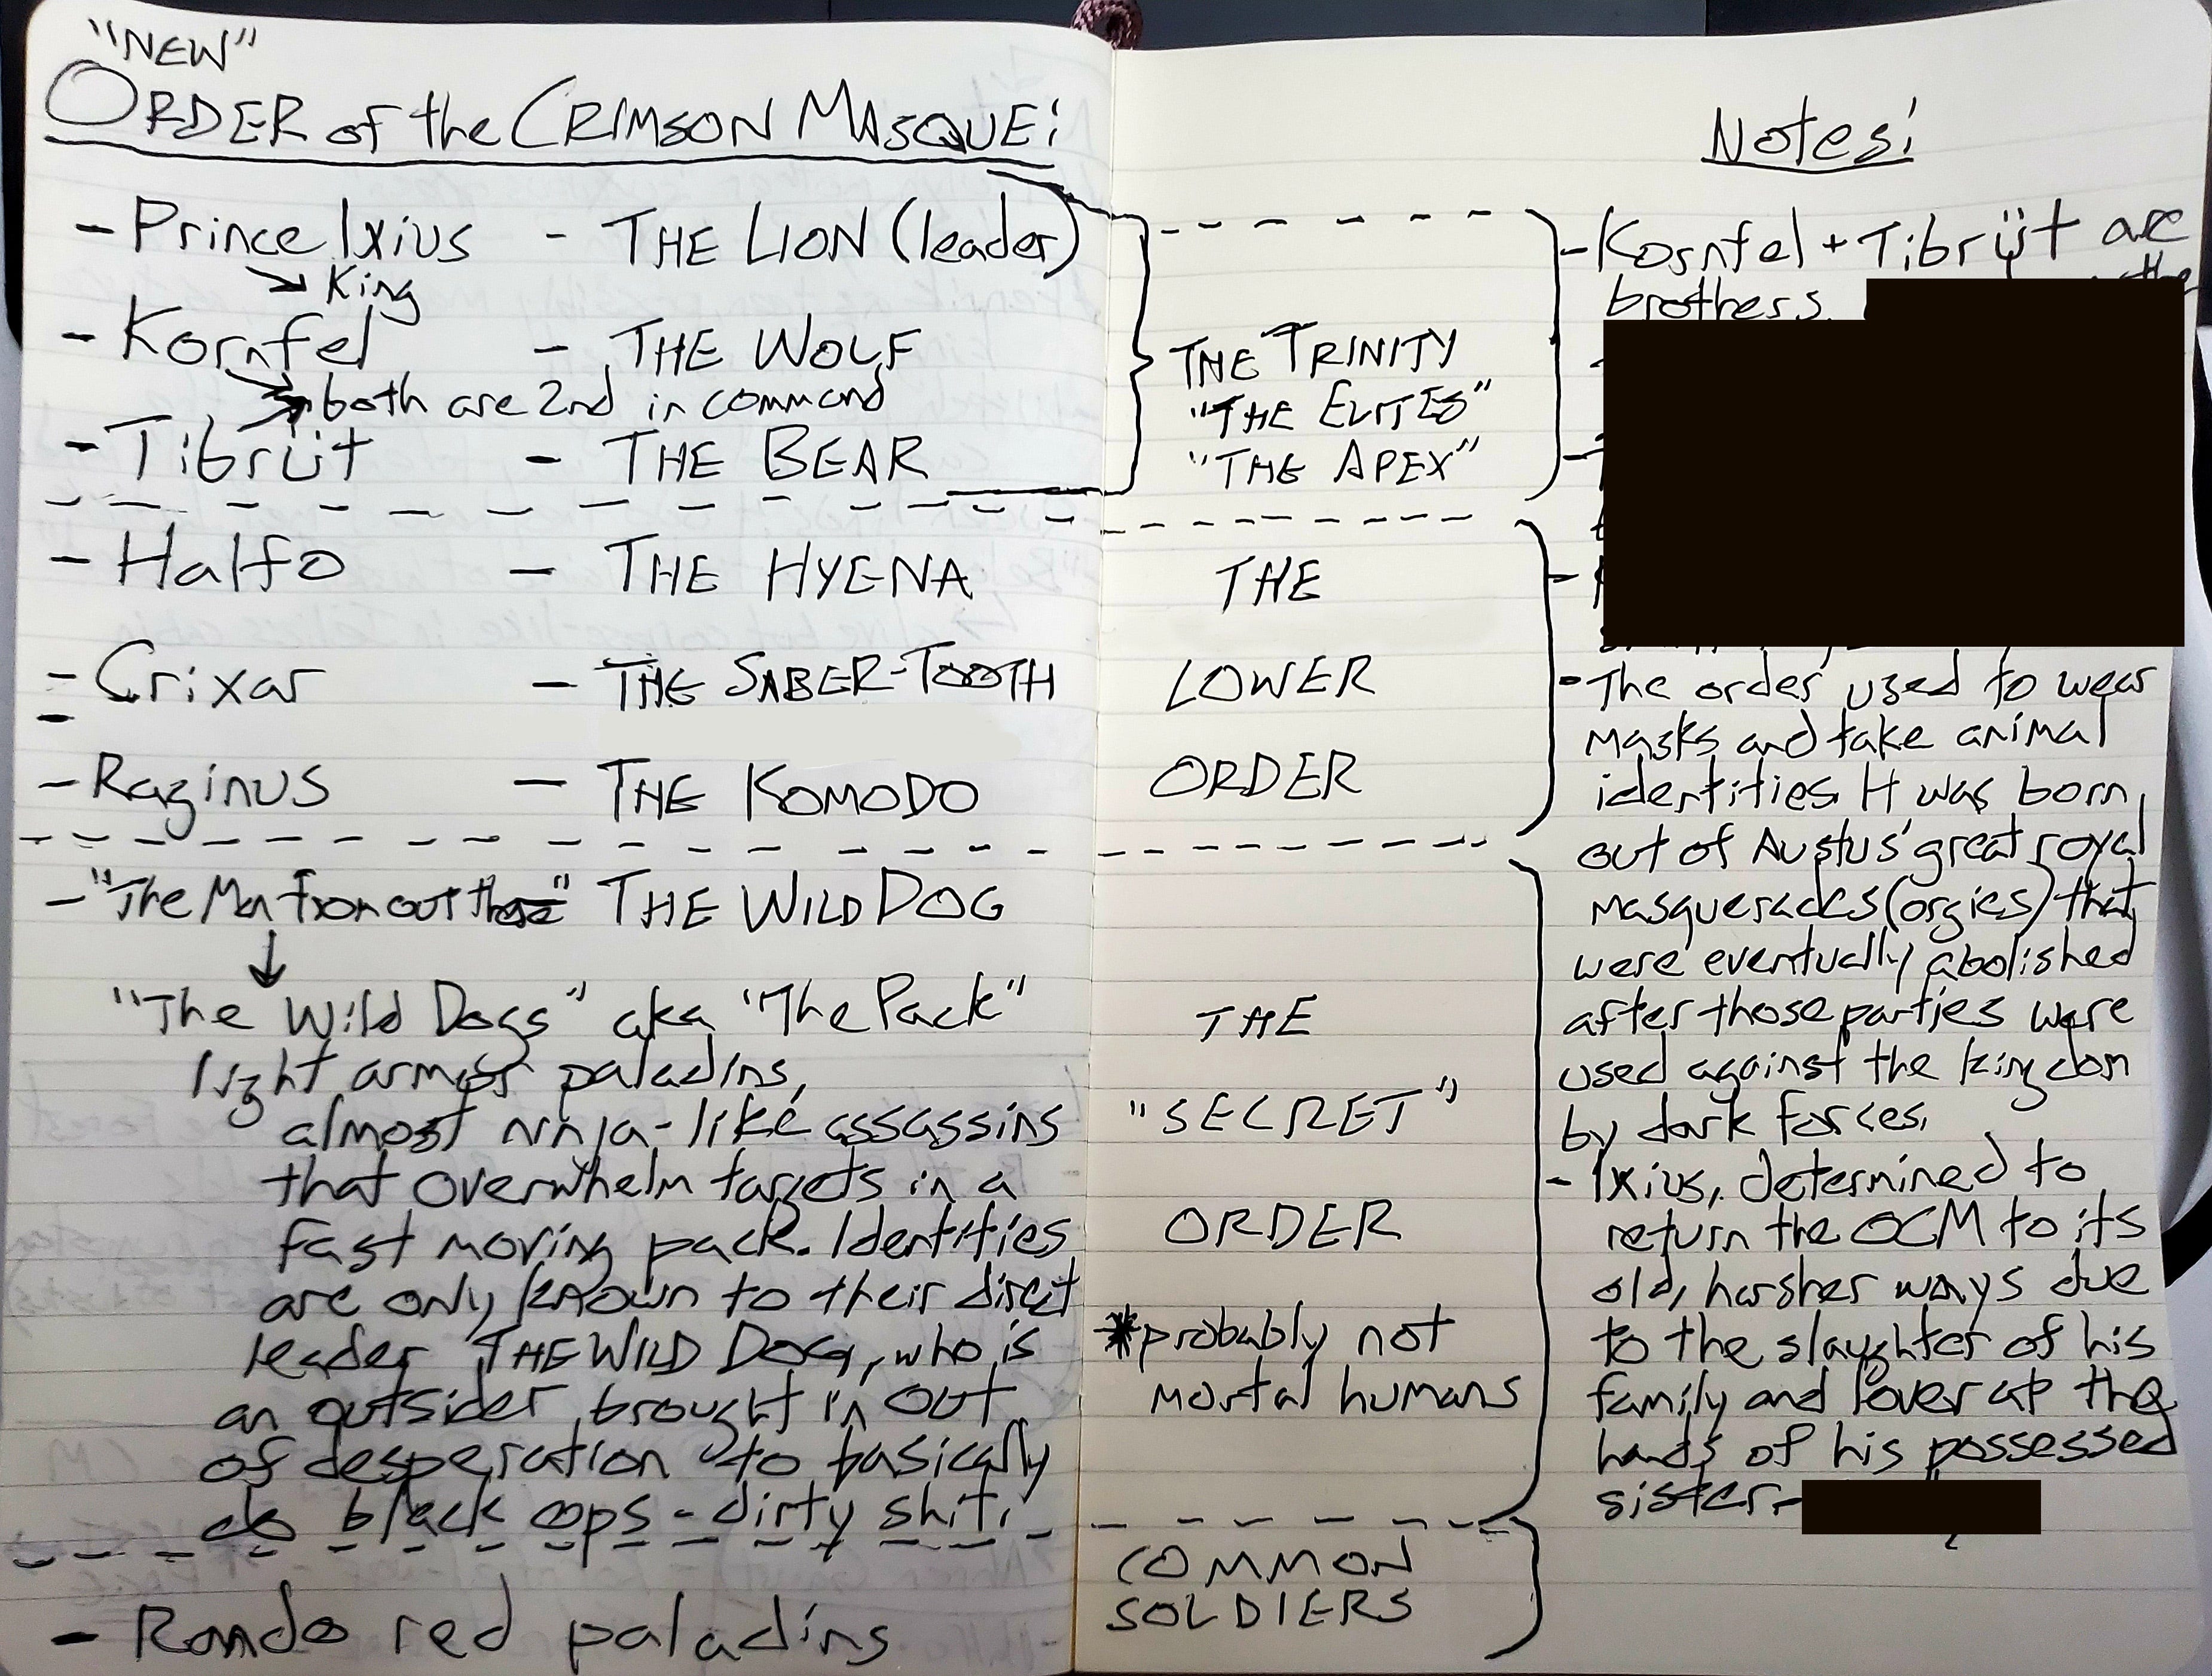 "NEW"
ORDER of the CRIMSON MASQUE:
- Prince Ixius - THE LION (leader)
↘ King
- Kornfel - THE WOLF
both are 2nd in command
- Tibrüt - THE BEAR
- Halfo - THE HYENA
- Crixar - THE SABER-TOOTH
- Raginus - THE KOMODO
- "The Man from out there" THE WILD DOG
↓
"The Wild Dogs" aka "The Pack"
light armor paladins,
almost ninja-like assassins
that overwhelm targets in a
fast moving pack. Identities
are only known to their direct
leader THE WILD DOG, who is
an outsider brought in out
of desperation to basically
do black ops - dirty shit.
- Rando red paladins
THE TRINITY
"THE ELITES"
"THE APEX"
THE
LOWER
ORDER
THE
"SECRET"
ORDER
*probably not
mortal humans
COMMON
SOLDIERS
Notes:
- Kornfel + Tibrüt are
brothers.
- The order used to wear
masks and take animal
identities. It was born
out of Austus' great royal
masquerades (orgies) that
were eventually abolished
after those parties were
used against the kingdom
by dark forces.
- Ixius, determined to
return the OCM to its
old, harsher ways due
to the slaughter of his
family and lover at the
hands of his possessed
sister-